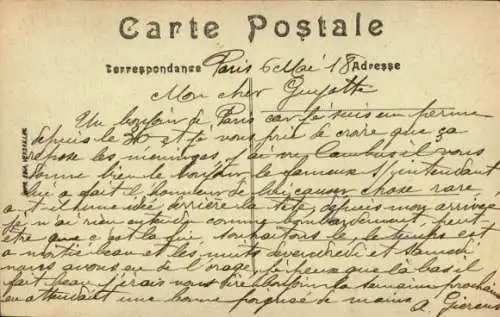 Carte Postale
Correspondance Adresse
Paris 6 Mai 18
Mon cher Guyotte
Un bonjour de Paris car je suis en perme
depuis le 30 et je vous prie de croire que ça
repose les méninges j'ai vu il vous
donne bien le bonjour le fameux S/ intendant
lui a fait l'honneur de lui causer chose rare
a t il une idée derrière la tête, depuis mon arrivée
je n'ai rien entendu comme bombardement, peut
être que c'est la fin, souhaitons le, le temps est
a moitié beau et les nuits de vendredi et samedi
nous avons eu de l'orage, je pense que la bas il
fait beau, j'irais vous dire bonjour la semaine prochaine
en attendant une bonne poignée de mains